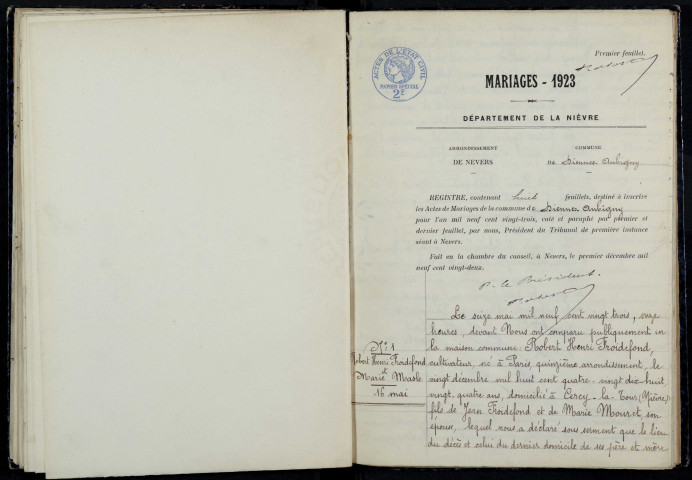 Premier feuillet.
ACTES DE L'ÉTAT CIVIL
PAPIER SPÉCIAL
2F
MARIAGES - 1923
DÉPARTEMENT DE LA NIÈVRE
ARRONDISSEMENT
DE NEVERS
COMMUNE
DE Diennes Aubigny
REGISTRE, contenant huit feuillets, destiné à inscrire
les Actes de Mariages de la commune de Diennes Aubigny
pour l'an mil neuf cent vingt-trois, coté et paraphé par premier et
dernier feuillet, par nous, Président du Tribunal de première instance
séant à Nevers.
Fait en la chambre du conseil, à Nevers, le premier décembre mil
neuf cent vingt-deux.
P. le Président.
N° 1
Robert Henri Froidefond
et
Marie Masle
16 mai
Le seize mai mil neuf cent vingt trois, onze
heures, devant Nous ont comparu publiquement en
la maison commune: Robert Henri Froidefond,
cultivateur, né à Paris, quinzième arrondissement, le
vingt décembre mil huit cent quatre-vingt dix-huit,
vingt-quatre ans, domicilié à Cercy-la-Tour (Nièvre)
fils de Jean Froidefond et de Marie Mouret, son
épouse, lequel nous a déclaré sous serment que le lieu
du décès et celui du dernier domicile de ses père et mère